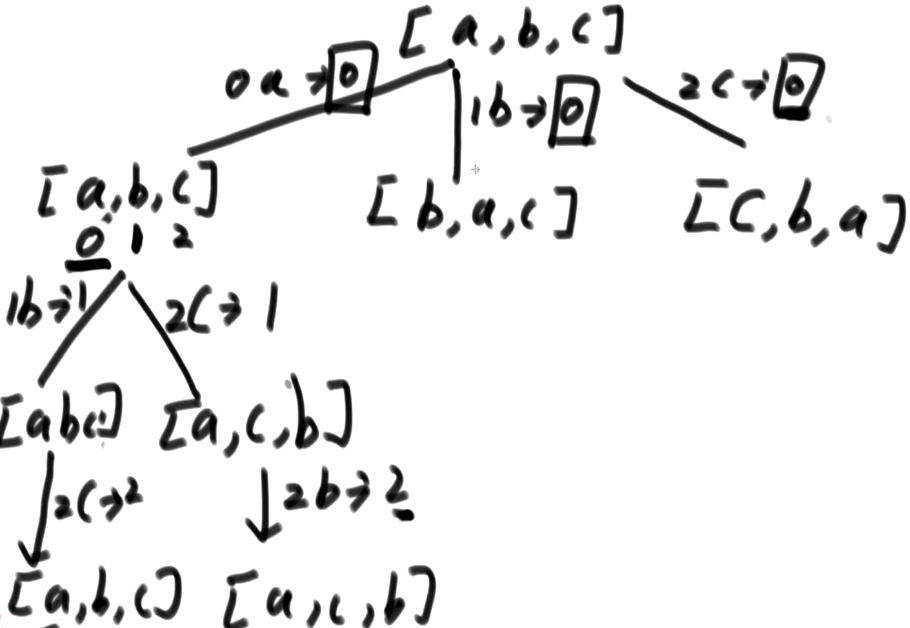 [a,b,c]
0a→0
1b→0
2c→0
[a,b,c]
[b,a,c]
[c,b,a]
0 1 2
1b→1
2c→1
[abc]
[a,c,b]
2c→2
2b→2
[a,b,c]
[a,c,b]